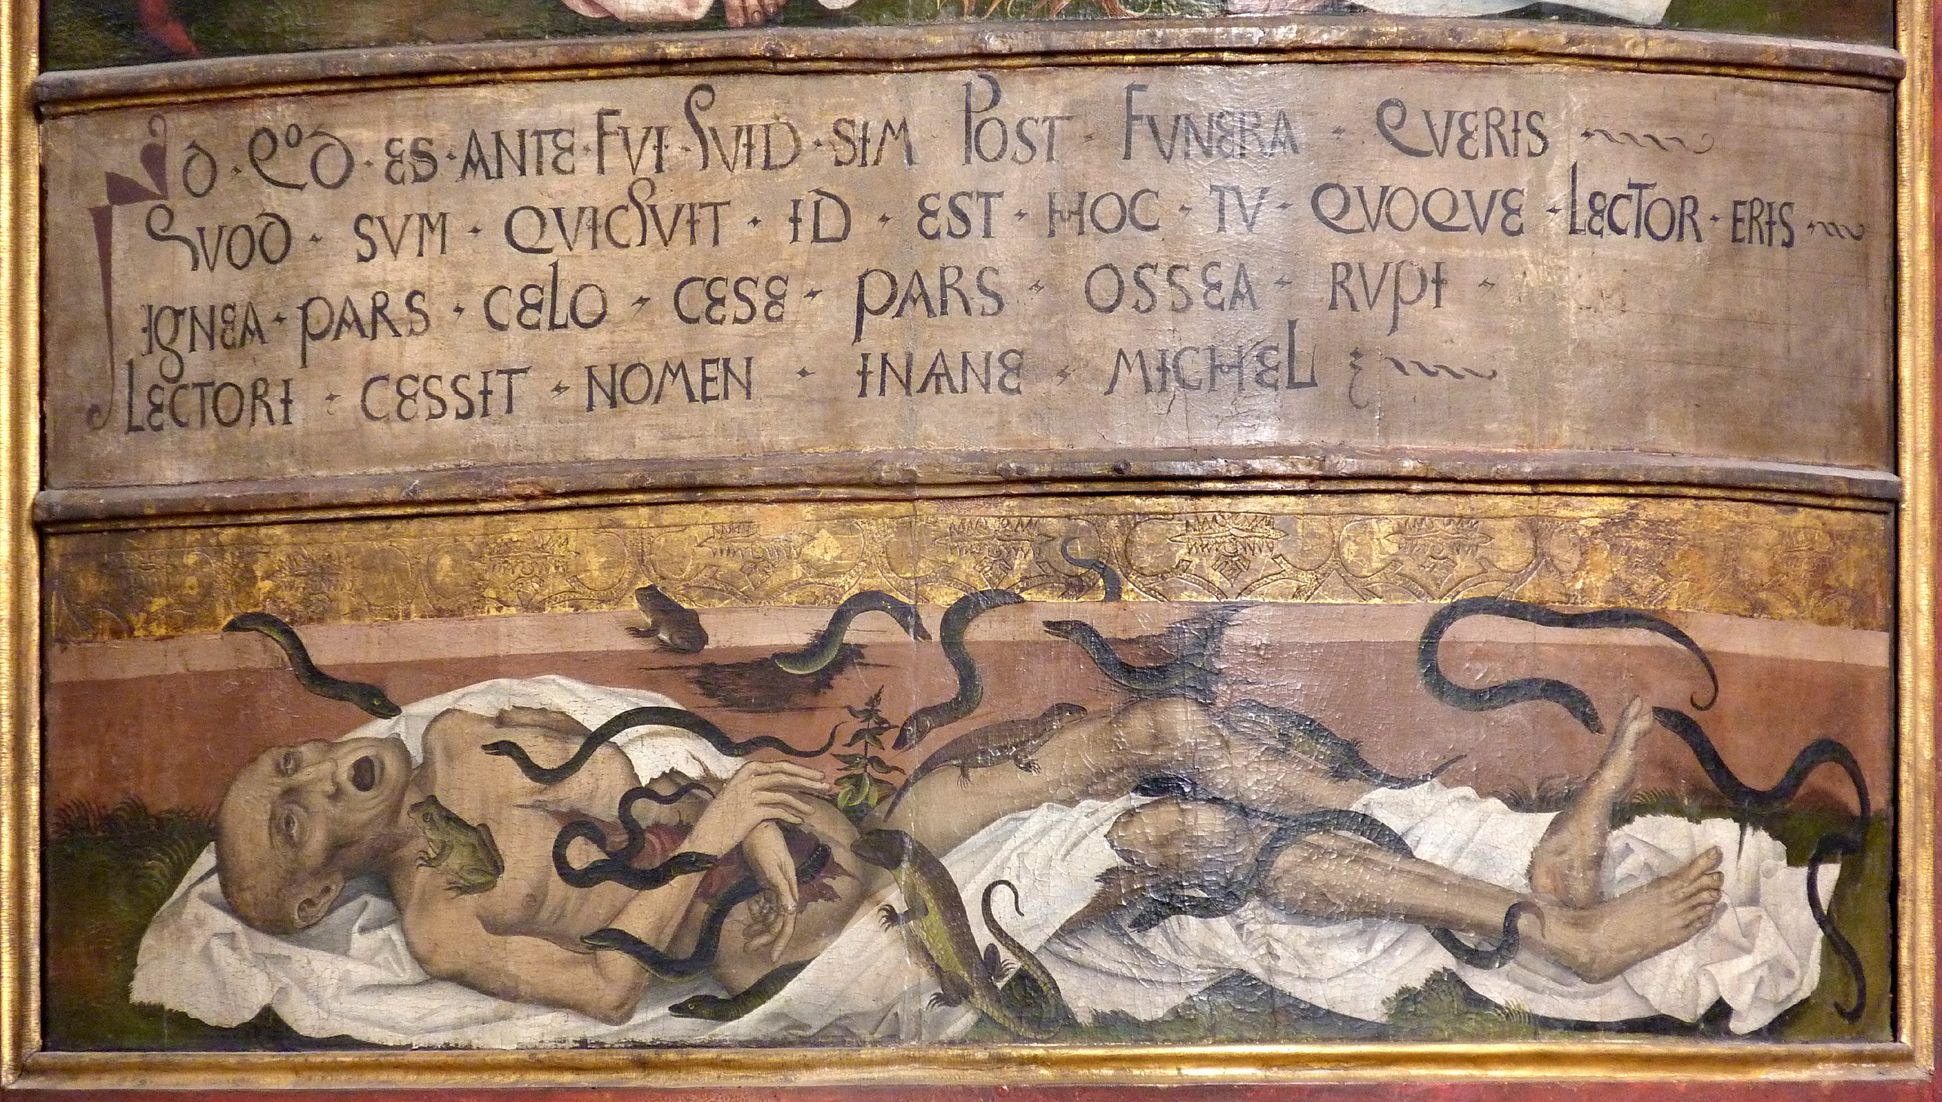 ID · QOD · ES · ANTE · FVI · QVID · SIM POST · FVNERA · QVERIS
QVOD · SVM · QVICQVIT · ID · EST · HOC · TV · QVOQVE · LECTOR · ERIS
IGNEA · PARS · CELO · CESE · PARS · OSSEA · RVPI ·
LECTORI · CESSIT · NOMEN · INANE · MICHEL